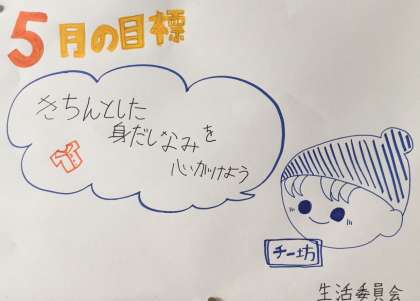 5月の目標
きちんとした
身だしなみを
心がけよう
チー坊
生活委員会